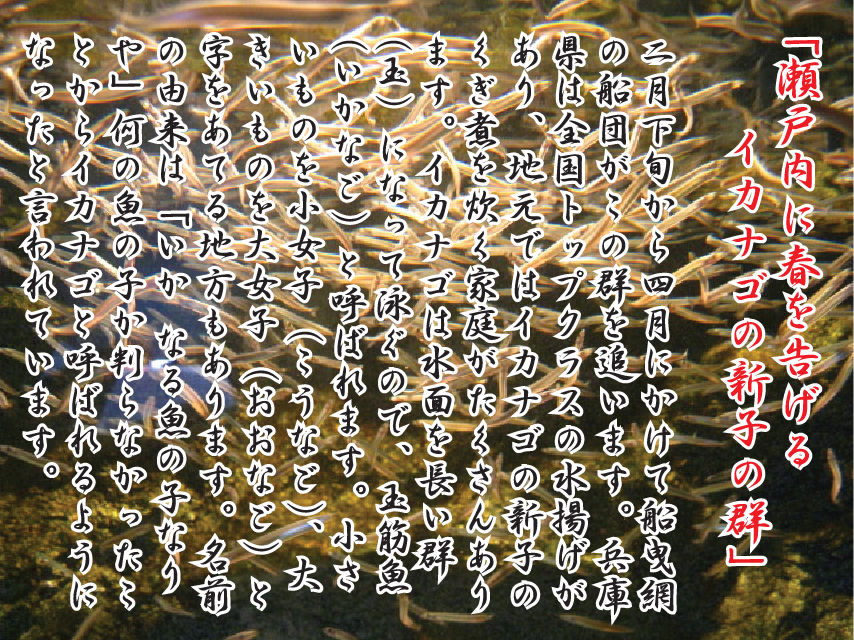 「瀬戸内に春を告げる
イカナゴの新子の群」
二月下旬から四月にかけて船曳網
の船団がこの群を追います。兵庫
県は全国トップクラスの水揚げが
あり、地元ではイカナゴの新子の
くぎ煮を炊く家庭がたくさんあり
ます。イカナゴは水面を長い群
（玉）になって泳ぐので、玉筋魚
（いかなご）と呼ばれます。小さ
いものを小女子（こうなご）、大
きいものを大女子（おおなご）と
字をあてる地方もあります。名前
の由来は「いか なる魚の子なり
や」何の魚の子か判らなかったこ
とからイカナゴと呼ばれるように
なったと言われています。